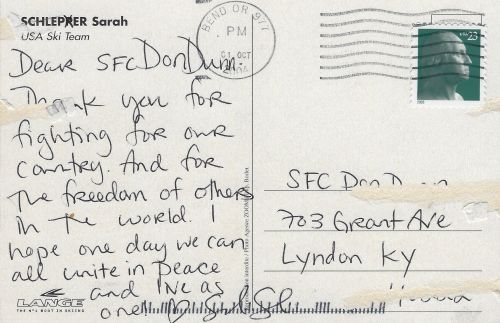 SCHLEPPER Sarah
USA Ski Team
BEND OR 977
PM
01 OCT
USA 23
Dear SFC Don Dunn:
Thank you for
fighting for our
country. And for
the freedom of others
in the world. I
hope one day we can
all unite in peace
and live as
one.
SFC Don Dunn
703 Grant Ave
Lyndon Ky
LANGE
THE Nº1 BOOT IN SKIING